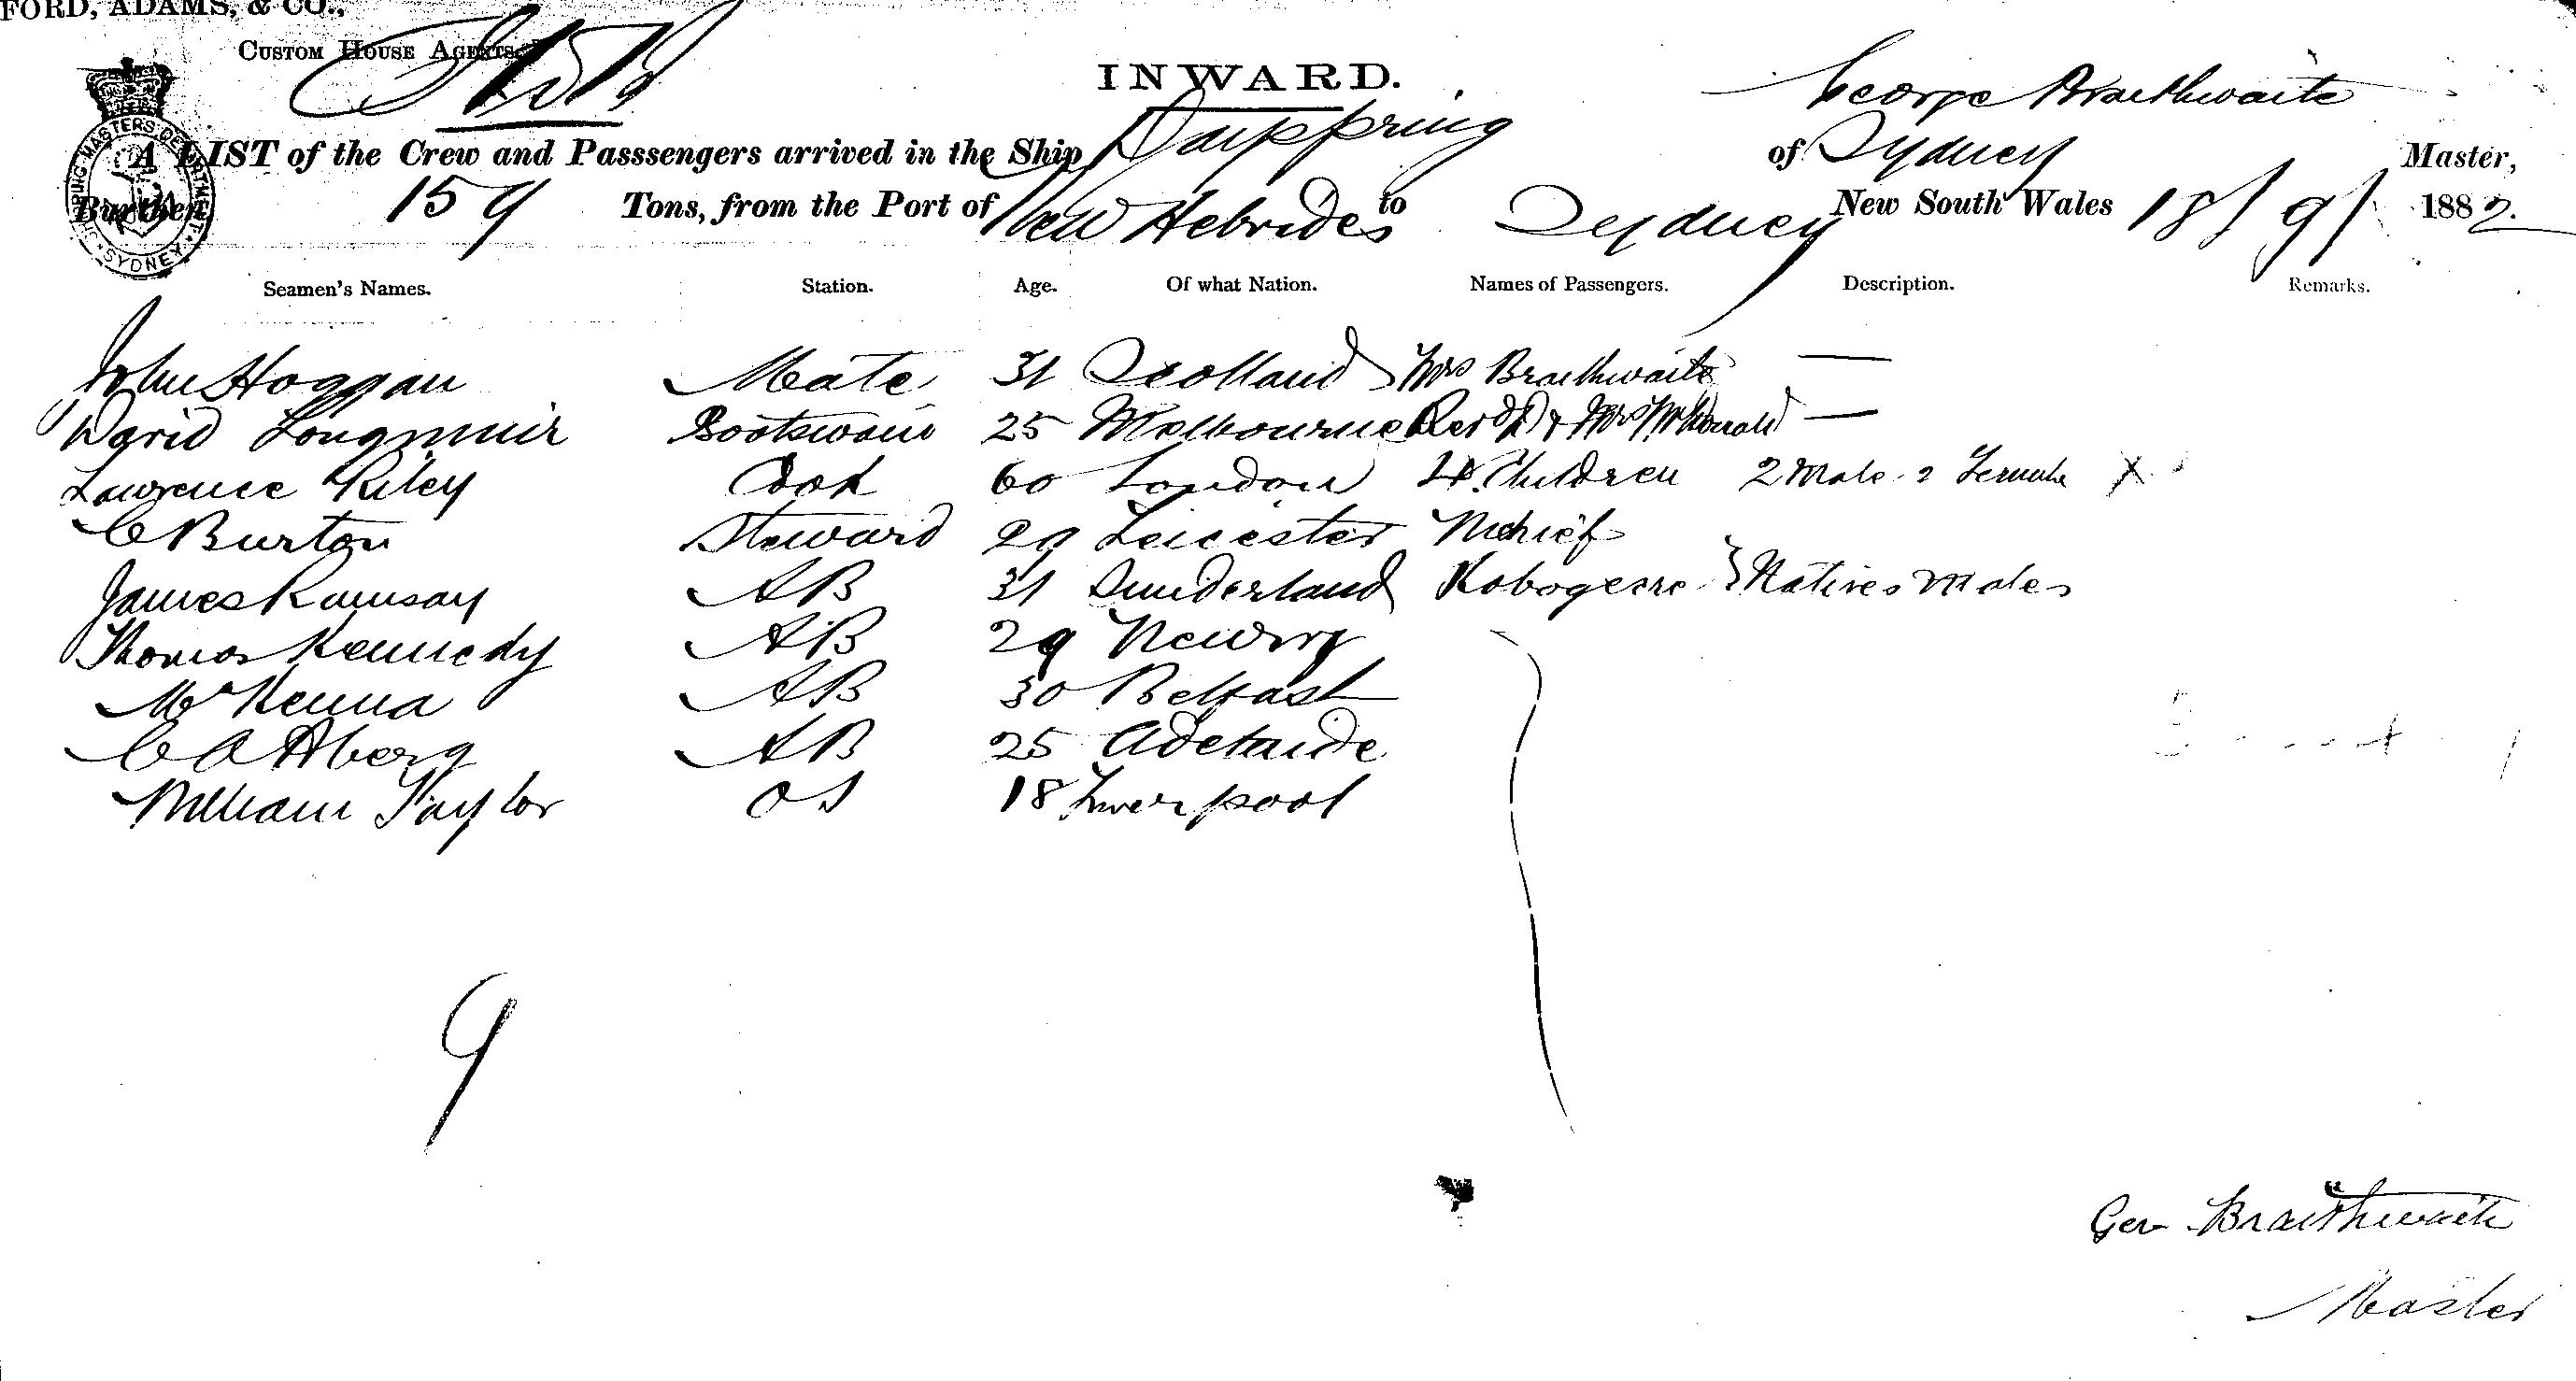 FORD, ADAMS, & CO.,
CUSTOM HOUSE AGENTS,
INWARD.
George Braithwaite
SHIPPING MASTERS DEPARTMENT SYDNEY
A LIST of the Crew and Passsengers arrived in the Ship Dayspring of Sydney Master,
Burthen 159 Tons, from the Port of New Hebrides to Sydney New South Wales 18/9/ 1882.
Seamen's Names. Station. Age. Of what Nation. Names of Passengers. Description. Remarks.
John Hoggan Mate 31 Scotland Mrs Braithwaite —
David Longmuir Boatswain 25 Melbourne Revd D & Mrs McDonald —
Lawrence Riley Cook 60 London 4 Children 2 Male 2 Female X
C Burton Steward 29 Leicester
James Ramsay AB 31 Sunderland } Natives Males
Thomas Kennedy AB 29 Newry
McKenna AB 30 Belfast
C A Aberg AB 25 Adelaide
William Taylor OS 18 Liverpool
9
Geo Braithwaite
Master